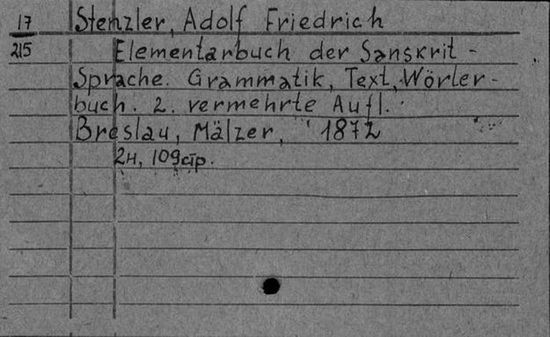 17 Stenzler, Adolf Friedrich
215 Elementarbuch der Sanskrit-
Sprache. Grammatik, Text, Wörter-
buch. 2. vermehrte Aufl.
Breslau, Mälzer, 1872
2н, 109 стр.